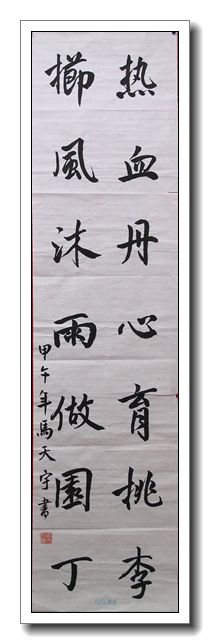 热血丹心育挑李
櫛風沐雨做園丁
甲午年馬天宇書